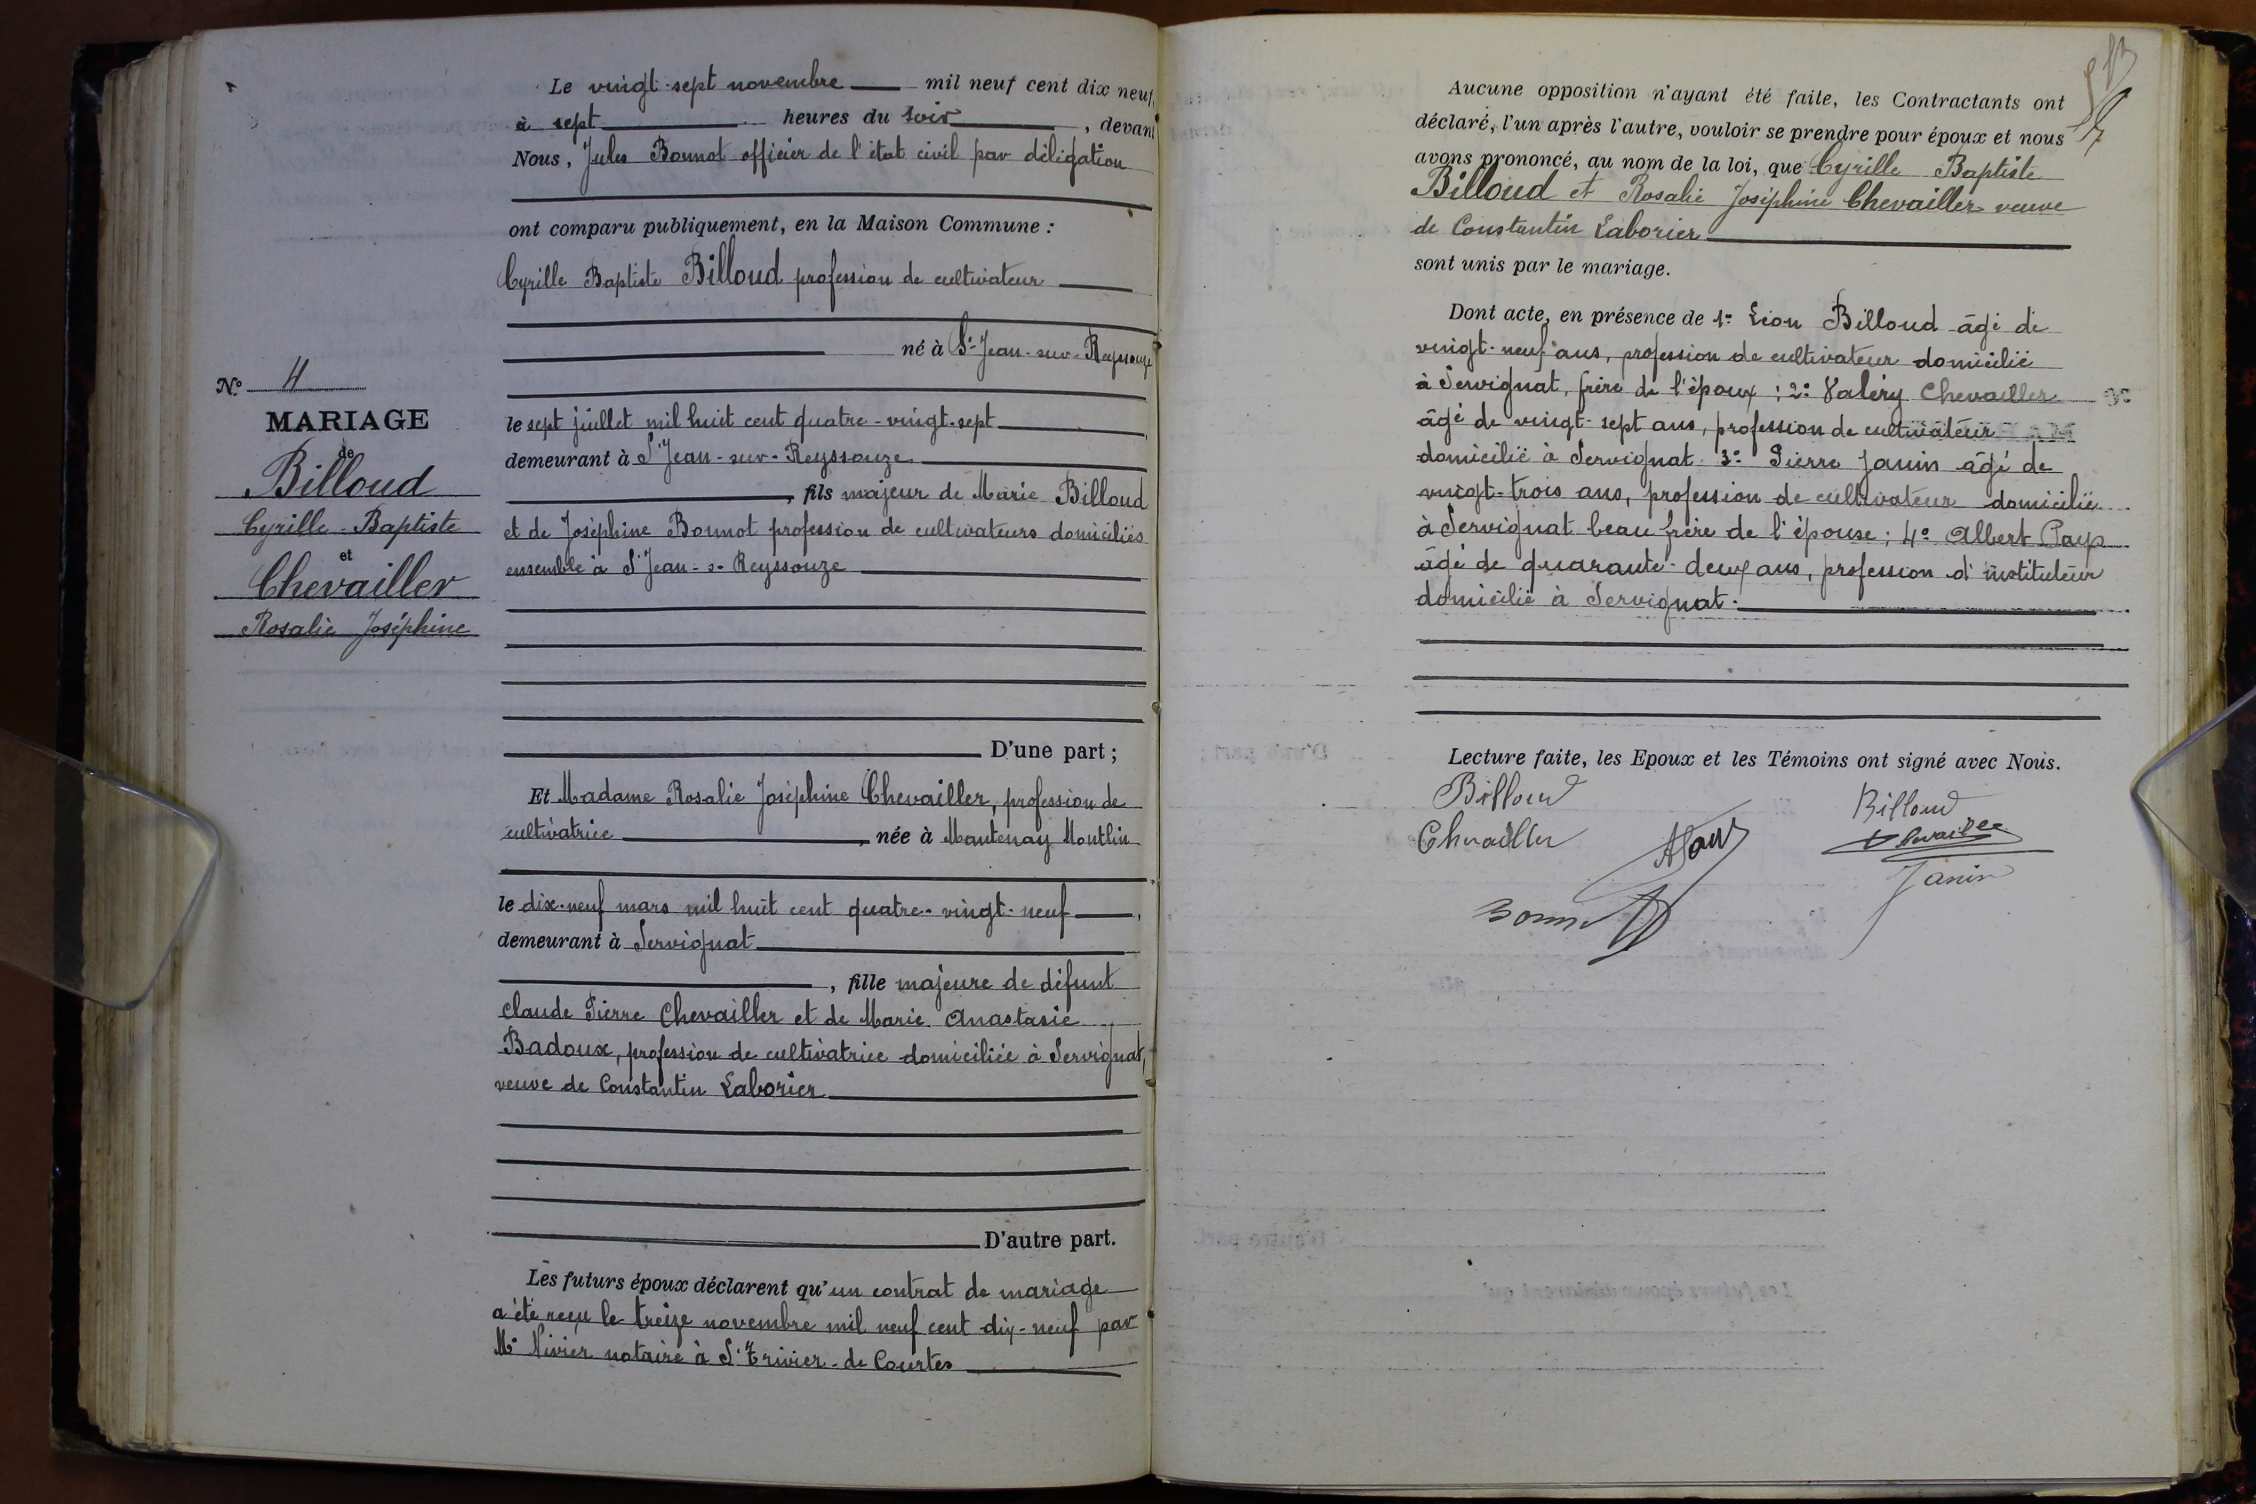 Le vingt-sept novembre mil neuf cent dix neuf,
à sept heures du soir, devant
Nous, Jules Bonnot officier de l'état civil par délégation
ont comparu publiquement, en la Maison Commune :
Cyrille Baptiste Billoud profession de cultivateur
né à St-Jean-sur-Reyssouze
le sept juillet mil huit cent quatre-vingt-sept
demeurant à St Jean-sur-Reyssouze
, fils majeur de Marie Billoud
et de Joséphine Bonnot profession de cultivateurs domiciliés
ensemble à St Jean-s-Reyssouze
D'une part ;
Et Madame Rosalie Joséphine Chevailler, profession de
cultivatrice, née à Mantenay Montlin
le dix-neuf mars mil huit cent quatre-vingt-neuf,
demeurant à Servignat
, fille majeure de défunt
Claude Pierre Chevailler et de Marie Anastasie
Badoux, profession de cultivatrice domiciliée à Servignat,
veuve de Constantin Laborier
D'autre part.
Les futurs époux déclarent qu'un contrat de mariage
a été reçu le treize novembre mil neuf cent dix-neuf par
Me Nivier notaire à St Trivier-de Courtes
No 4
MARIAGE
de
Billoud
Cyrille-Baptiste
et
Chevailler
Rosalie Joséphine
Aucune opposition n'ayant été faite, les Contractants ont
déclaré, l'un après l'autre, vouloir se prendre pour époux et nous
avons prononcé, au nom de la loi, que Cyrille Baptiste
Billoud et Rosalie Joséphine Chevailler veuve
de Constantin Laborier
sont unis par le mariage.
Dont acte, en présence de 1o Léon Billoud âgé de
vingt-neuf ans, profession de cultivateur domicilié
à Servignat, frère de l'époux ; 2o Valéry Chevailler
âgé de vingt-sept ans, profession de cultivateur
domicilié à Servignat 3o Pierre Janin âgé de
vingt-trois ans, profession de cultivateur domicilié
à Servignat beau frère de l'épouse ; 4o Albert Pays
âgé de quarante-deux ans, profession d'instituteur
domicilié à Servignat.
Lecture faite, les Epoux et les Témoins ont signé avec Nous.
Billoud
Billoud
Chevailler
Chevailler
Janin
Bonnot